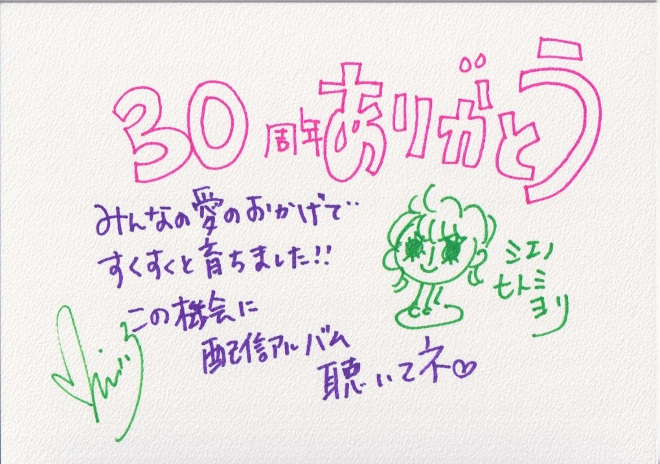 30周年ありがとう
みんなの愛のおかげで‥
すくすくと育ちました!!
この機会に
配信アルバム
聴いてネ♡
シエノ
ヒトミ
ヨリ